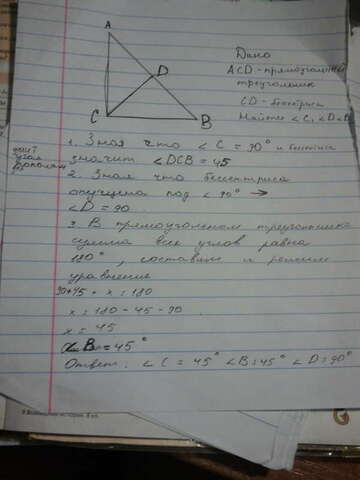 A
D
C
B
Дано
ACD - прямоугольный
треугольник
CD - бисстриса
Найти < C, < D и < B
1. Зная что < C = 90° и бисстриса
значит < DCB = 45
2. Зная что биссентриса
опущена под < 90° →
< D = 90
3. В прямоугольном треугольнике
сумма всех углов равна
180°, составим и решим
уравнение
90+45 + x = 180
x = 180 - 45 - 90
x = 45
< B = 45°
Ответ: < C = 45° < B = 45° < D = 90°